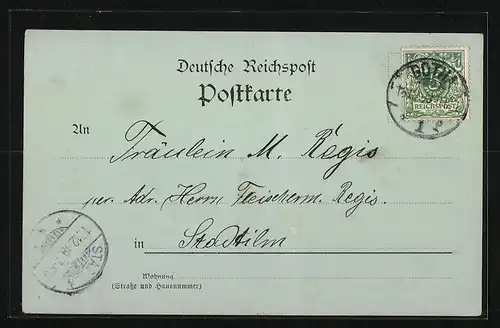 Deutsche Reichspost
Postkarte
GOTHA
REICHSPOST
1
An
Fräulein M. Régis
per. Adr. Herrn Fleischerm. Regis.
in Stadtilm
STADT
12
Wohnung
(Straße und Hausnummer)